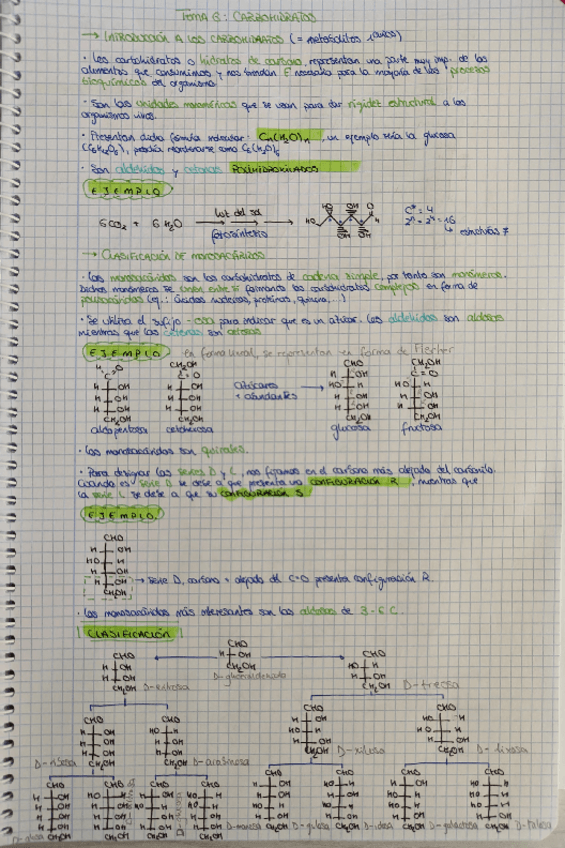 Tema 6: CARBOHIDRATOS
→ INTRODUCCIÓN A LOS CARBOHIDRATOS (= metabolitos 1arios)
· Los carbohidratos o hidratos de carbono, representan una parte muy imp. de los
alimentos que consumimos y nos brindan E necesaria para la mayoría de los procesos
bioquímicos del organismo.
· Son las unidades monoméricas que se usan para dar rigidez estructural a los
organismos vivos.
· Presentan dicha fórmula molecular: Cn(H2O)n, un ejemplo sería la glucosa
(C6H12O6), podría nombrarse como C6(H2O)6
· Son aldehídos y cetonas POLIHIDROXILADOS
EJEMPLO
6CO2 + 6H2O luz del sol fotosíntesis
C* = 4
2^n = 2^4 = 16
estructuras ≠
→ CLASIFICACIÓN DE MONOSACÁRIDOS
· Los monosacáridos son los carbohidratos de cadena simple, por tanto son monómeros.
Dichos monómeros se unen entre sí formando los carbohidratos complejos en forma de
polisacáridos (ej.: ácidos nucleicos, proteínas, quitina, ...)
· Se utiliza el sufijo -osa para indicar que es un azúcar. Los aldehídos son aldosas
mientras que las cetonas son cetosas
EJEMPLO en forma lineal, se representan en forma de Fischer
CHO CH2OH
C=O
H OH
H OH
H OH
CH2OH
aldopentosa cetohexosa
azúcares
+ abundantes
CHO CH2OH
H OH C=O
HO H HO H
H OH H OH
H OH H OH
CH2OH CH2OH
glucosa fructosa
· Los monosacáridos son quirales.
· Para designar las series D y L, nos fijamos en el carbono más alejado del carbonilo.
Cuando es serie D se debe a que presenta una CONFIGURACIÓN R, mientras que
la serie L se debe a que su CONFIGURACIÓN S
EJEMPLO
CHO
H OH
HO H
H OH
H OH
CH2OH
→ serie D, carbono + alejado del C=O presenta configuración R.
· Los monosacáridos más interesantes son las aldosas de 3-6 C.
CLASIFICACIÓN
CHO
H OH
CH2OH
D-gliceraldehído
CHO CHO
H OH HO H
H OH H OH
CH2OH D-eritrosa CH2OH D-treosa
CHO CHO CHO CHO
H OH HO H H OH HO H
H OH H OH HO H HO H
H OH H OH H OH H OH
D-ribosa CH2OH CH2OH D-arabinosa CH2OH D-xilosa CH2OH D-lixosa
CHO CHO CHO CHO CHO CHO CHO CHO
D-alosa CH2OH CH2OH CH2OH CH2OH D-manosa CH2OH D-gulosa CH2OH D-idosa CH2OH D-galactosa CH2OH D-talosa